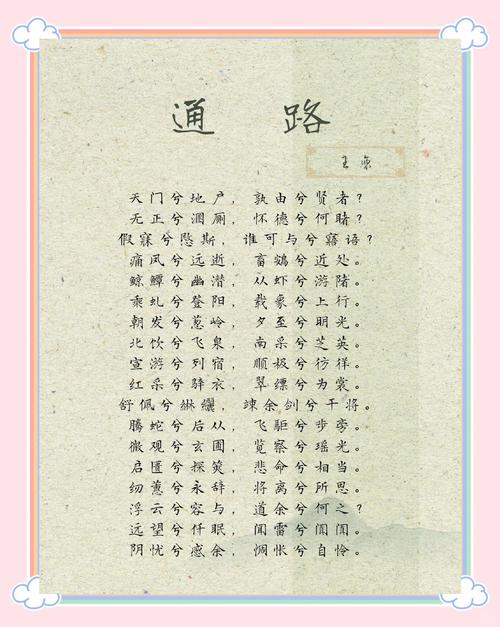 通路
王褒
天门兮地户，孰由兮贤者？
无正兮溷厕，怀德兮何睹？
假寐兮愍斯，谁可与兮寤语？
痛凤兮远逝，畜鴳兮近处。
鲸鱏兮幽潜，从虾兮游陼。
乘虬兮登阳，载象兮上行。
朝发兮葱岭，夕至兮明光。
北饮兮飞泉，南采兮芝英。
宣游兮列宿，顺极兮彷徉。
红采兮骍衣，翠缥兮为裳。
舒佩兮綝纚，竦余剑兮干将。
腾蛇兮后从，飞駏兮步旁。
微观兮玄圃，览察兮瑶光。
启匮兮探筴，悲命兮相当。
纫蕙兮永辞，将离兮所思。
浮云兮容与，道余兮何之？
远望兮仟眠，闻雷兮阗阗。
阴忧兮感余，惆怅兮自怜。